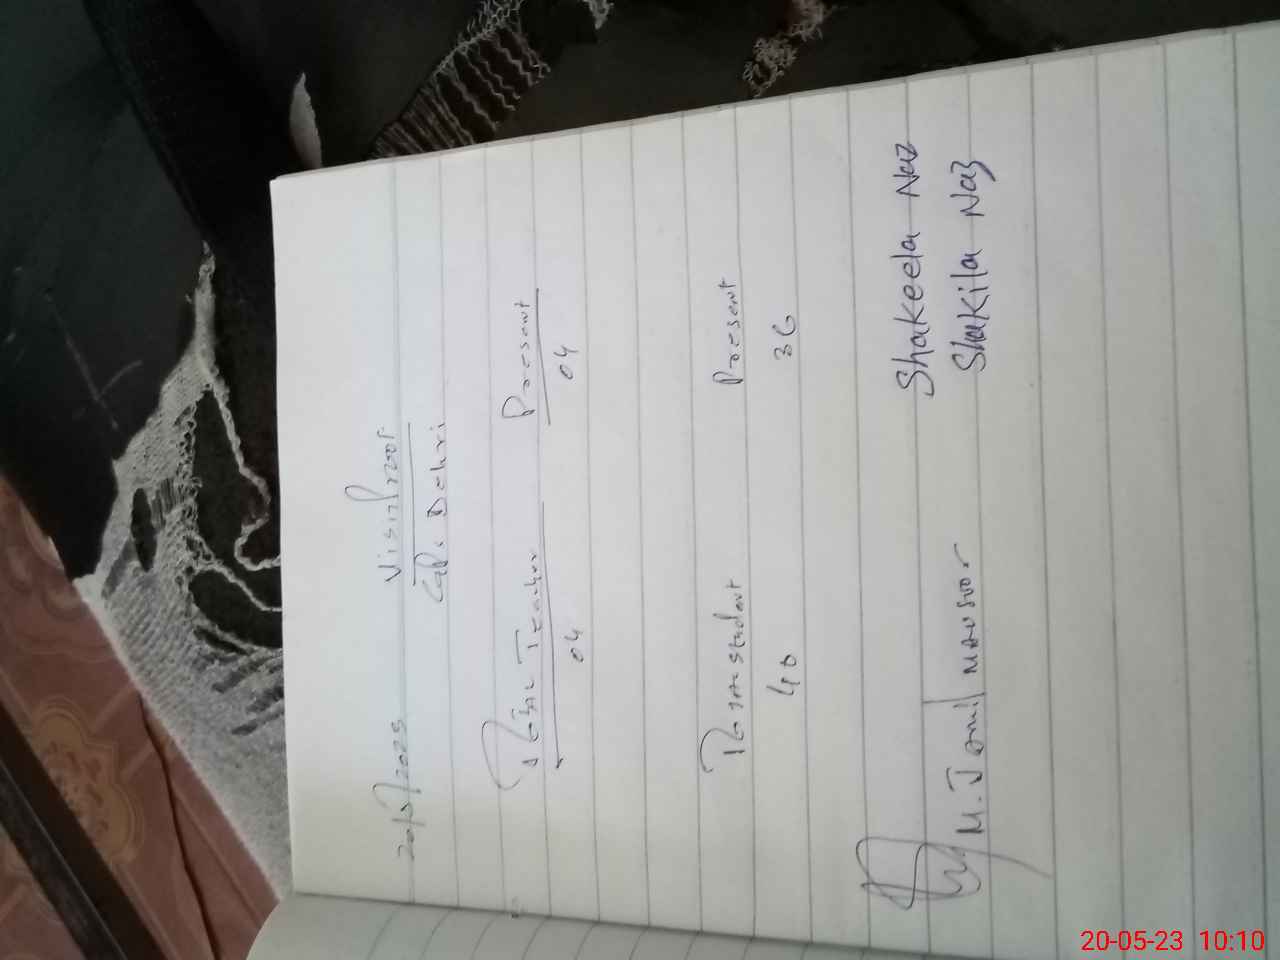 20/5/2023 Visit
Dehri
Teacher Present
04 04
student Present
40 36
Shakeela Naz
M. Jamil mansoor Shakila Naz
20-05-23 10:10